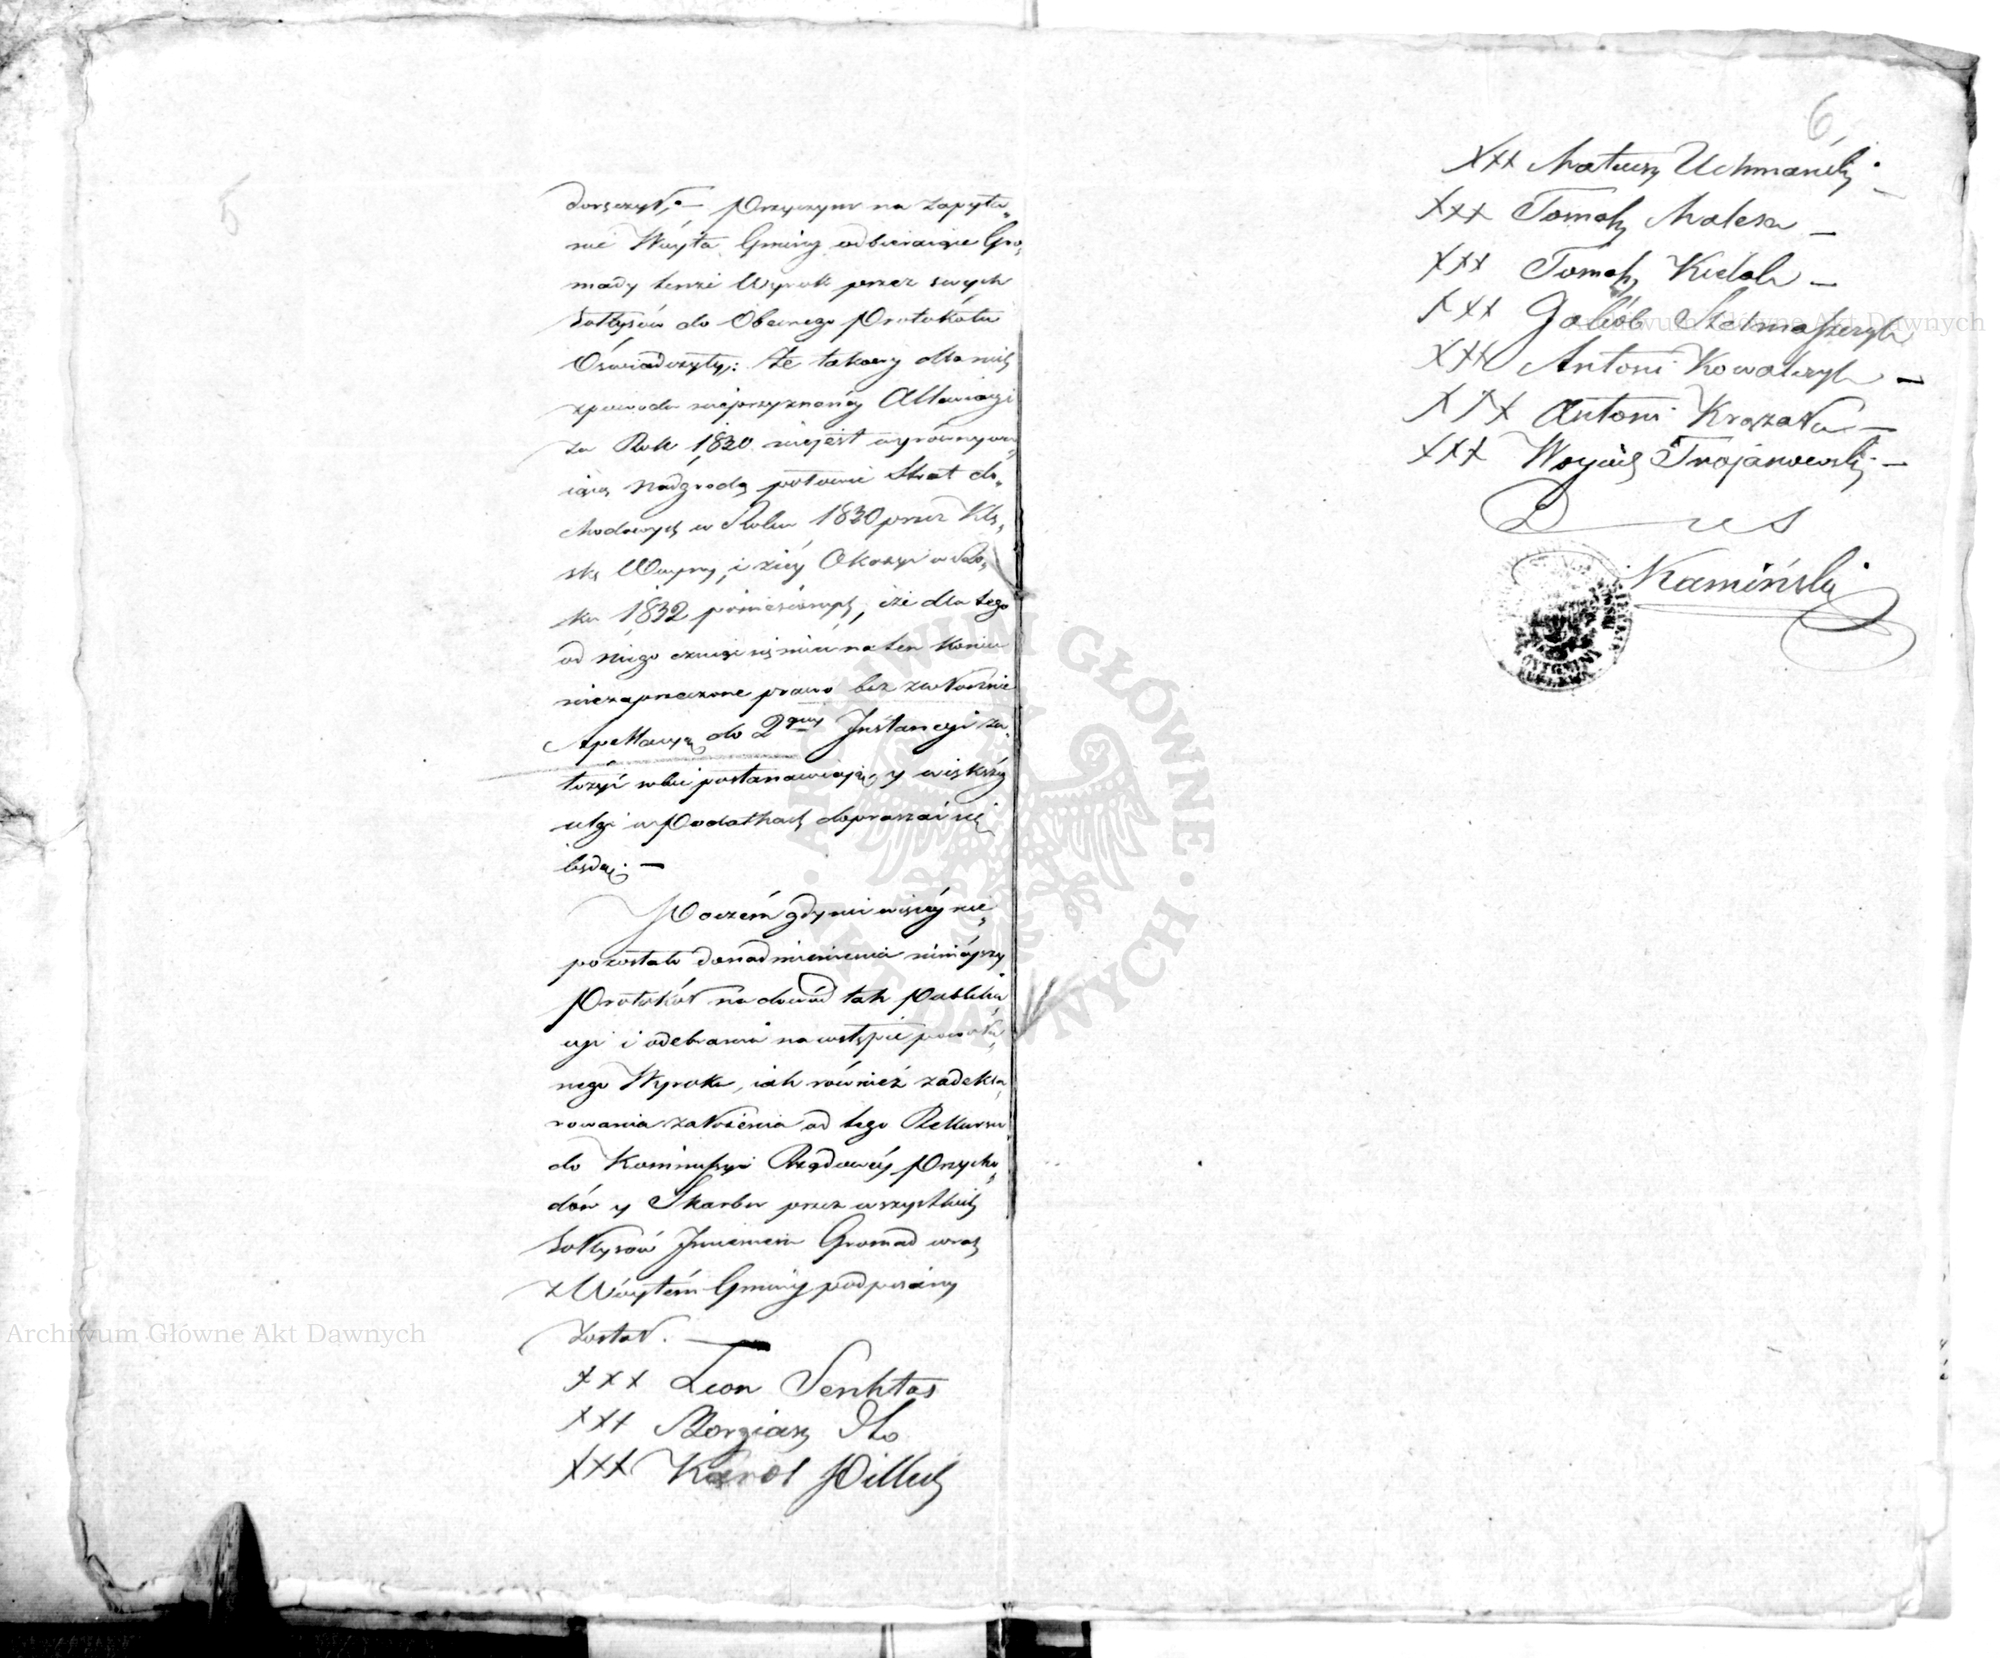 5
doręczył, – Przyczym na zapyta„
nie Wóyta Gminy odbieraiące Gro„
mady tenże Wyrok przez swych
Sołtysów do Obecnego Protokółu
Oświadczyły: że takowy dla nich
z powodu nieprzyznanéy Allewiacyi
za Rok 1830 niejest wyrównywa„
iącą nadgrodą połowie Strat do„
chodowych w Roku 1830 przez Klę„
skę Woyny, i téy Okazyi w Ro„
ku 1832 poniesionych, iże dla tego
od niego czuiąc się mieć na ten koniec
niezaprzeczone prawo bez zwłocznie
Apellacyą do 2giey Instancyi za„
łożyć sobie postanawiają, y większey
ulgi w Podatkach dopraszać się
będą. –
Poczém gdy nic więcéy nie„
pozostało do nadmienienia ninieyszy
Protokół na dowód tak Publika„
cyi i odebrania na wstępie powoła„
nego Wyroku, iak również zadekla„
rowania założenia od tego Rekursu
do Kommissyi Rządowéy Przycho„
dów y Skarbu przez wszystkich
Sołtysów Imieniem Gromad wraz
z Wóytem Gminy podpisany
został. —
XXX Leon Senktas
XXX Karol Pilluch
6
XXX Mateusz Uchmański
XXX Tomasz Malesa –
XXX Tomasz –
XXX Jakób Stelmaszczyk
XXX Antoni Kowalczyk –
XXX Antoni Krązała –
XXX Woyciech Trojanowski –
Kamiński
Archiwum Główne Akt Dawnych
Archiwum Główne Akt Dawnych
ARCHIWUM GŁÓWNE AKT DAWNYCH